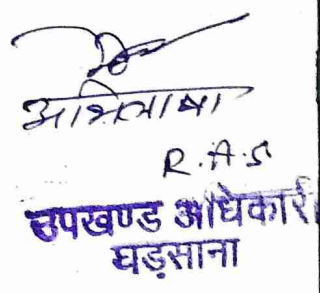 अभिलाषा
R.A.S
उपखण्ड अधिकारी
घड़साना